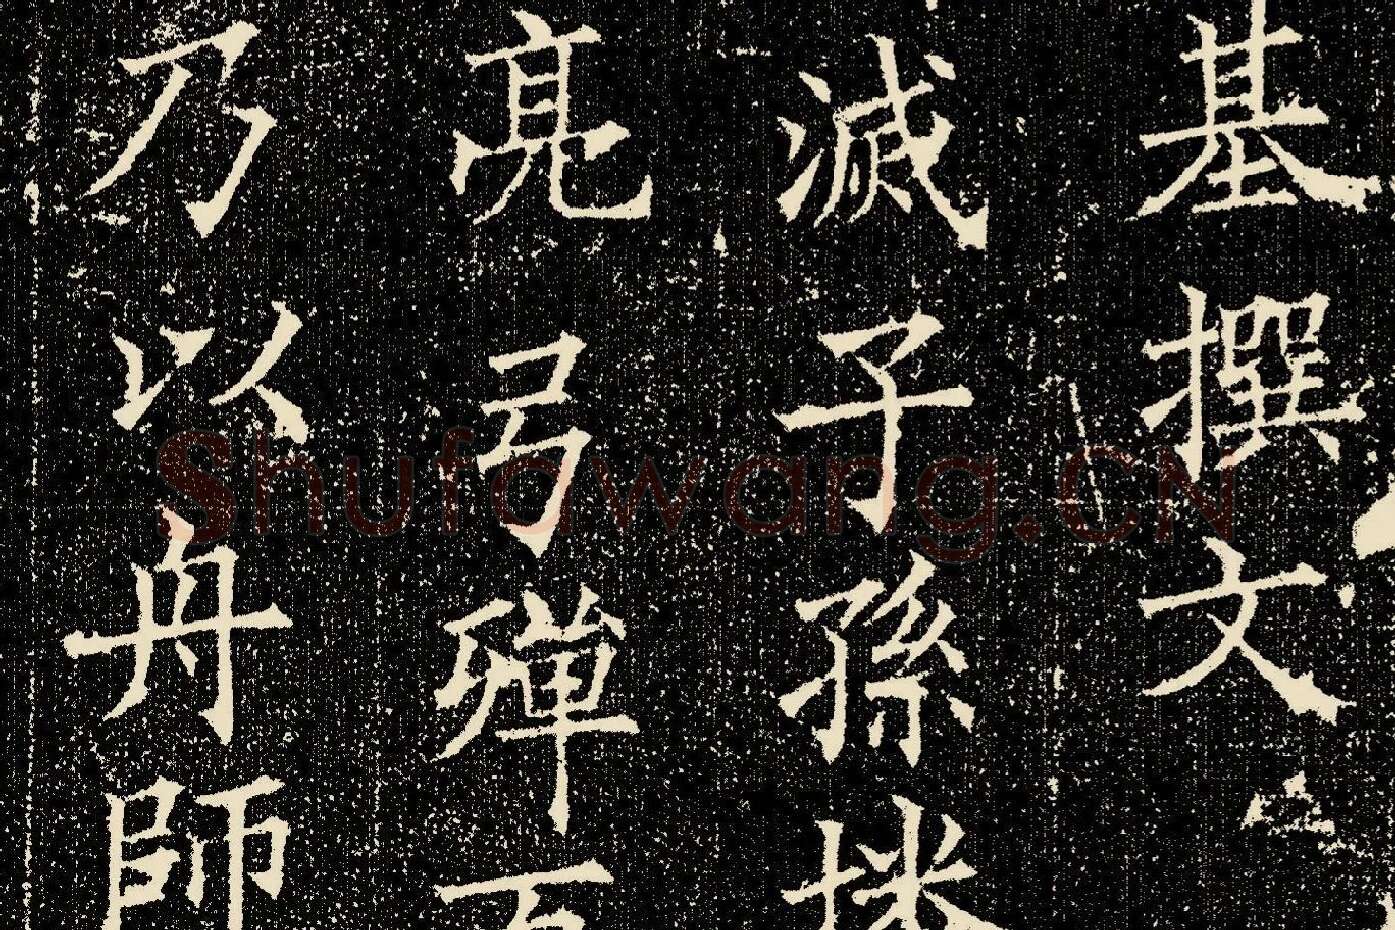 基撰文
滅子孫播
亮弓殫
乃以舟師
Shufawang.CN